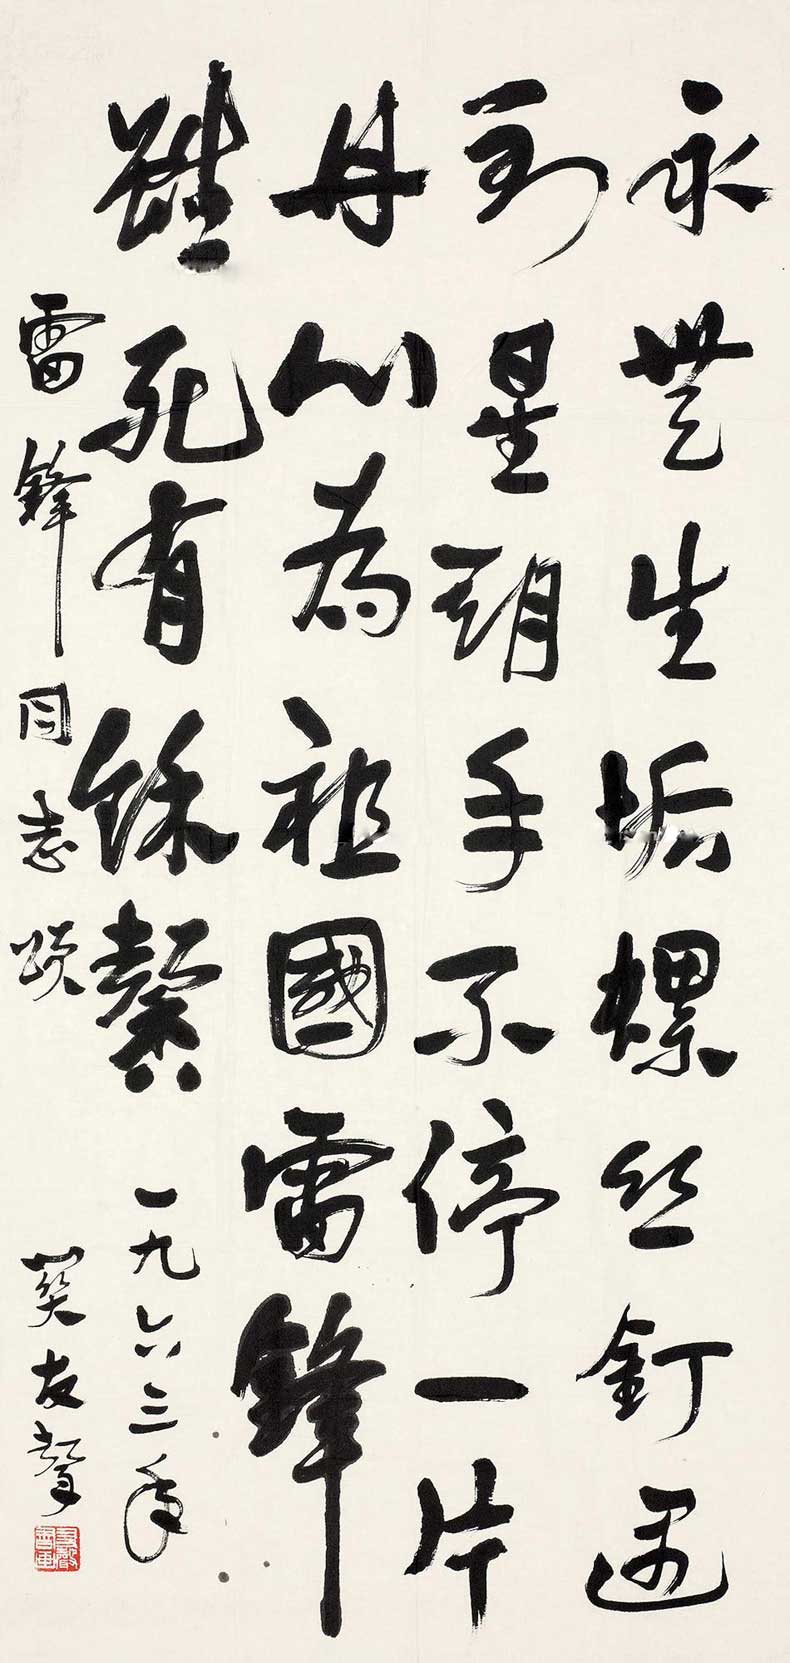 永無生垢螺丝釘遇
到星期手不停一片
丹心為祖國雷鋒
雖死有餘馨
雷鋒同志頌
一九六三年
關友聲